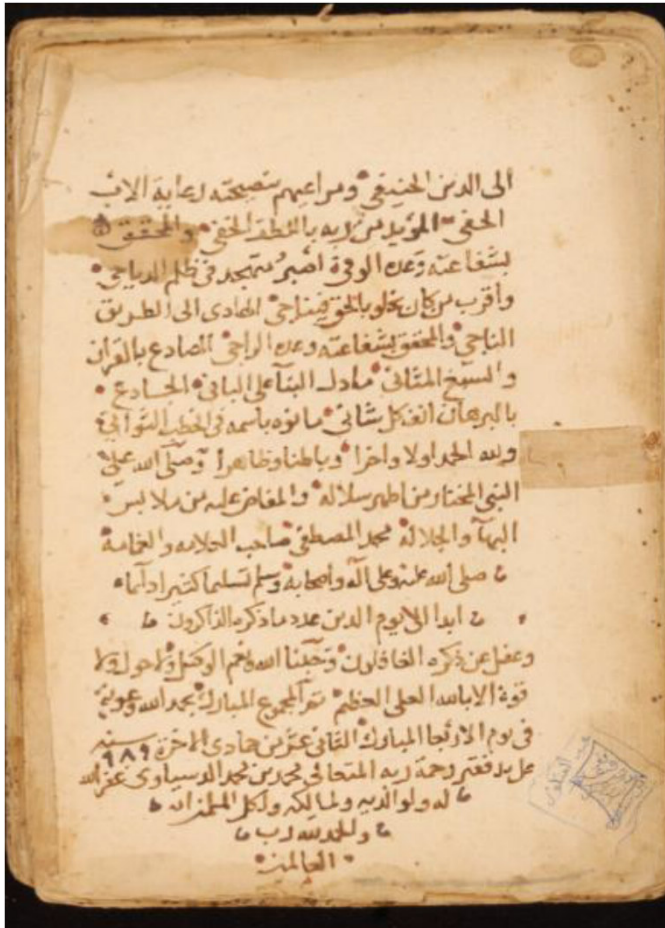 الى الدين الحنيفي ومراعيهم بنصيحته رعاية الاب
الحفي المؤيد من ربه باللطف الخفي والمحقق
لشفاعته وعده الوفي
واقرب من كان الهادى الى الطريق
الناجي والمحقق لشفاعته وعده الراجي الصادع بالقران
والسبع المثاني ما دل البنا على الباني الجادع
بالبرهان انف كل شاني ما نوه باسمه في الخطب
ولله الحمد اولا واخرا وباطنا وظاهرا وصلى الله على
النبي المختار من اطهر سلاله والمفاض عليه من ملابس
البهآ والجلاله محمد المصطفى صاحب العلامه والغمامة
صلى الله عليه وعلى آله واصحابه وسلم تسليما كثيرا دآئما
ابدا الى يوم الدين عدد ما ذكره الذاكرون
وغفل عن ذكره الغافلون وحسبنا الله ونعم الوكيل ولا حول ولا
قوة الا بالله العلي العظيم تم المجموع المبارك بحمد الله وعونه
في يوم الاربعا المبارك الثاني عشر من جمادى الاخرة سنه ٩٨٩
على يد فقير رحمة ربه المتعالي محمد بن محمد الدسياوى غفر الله
له ولوالديه ولمالكه ولكل المسلمين
والحمد لله رب
العالمين